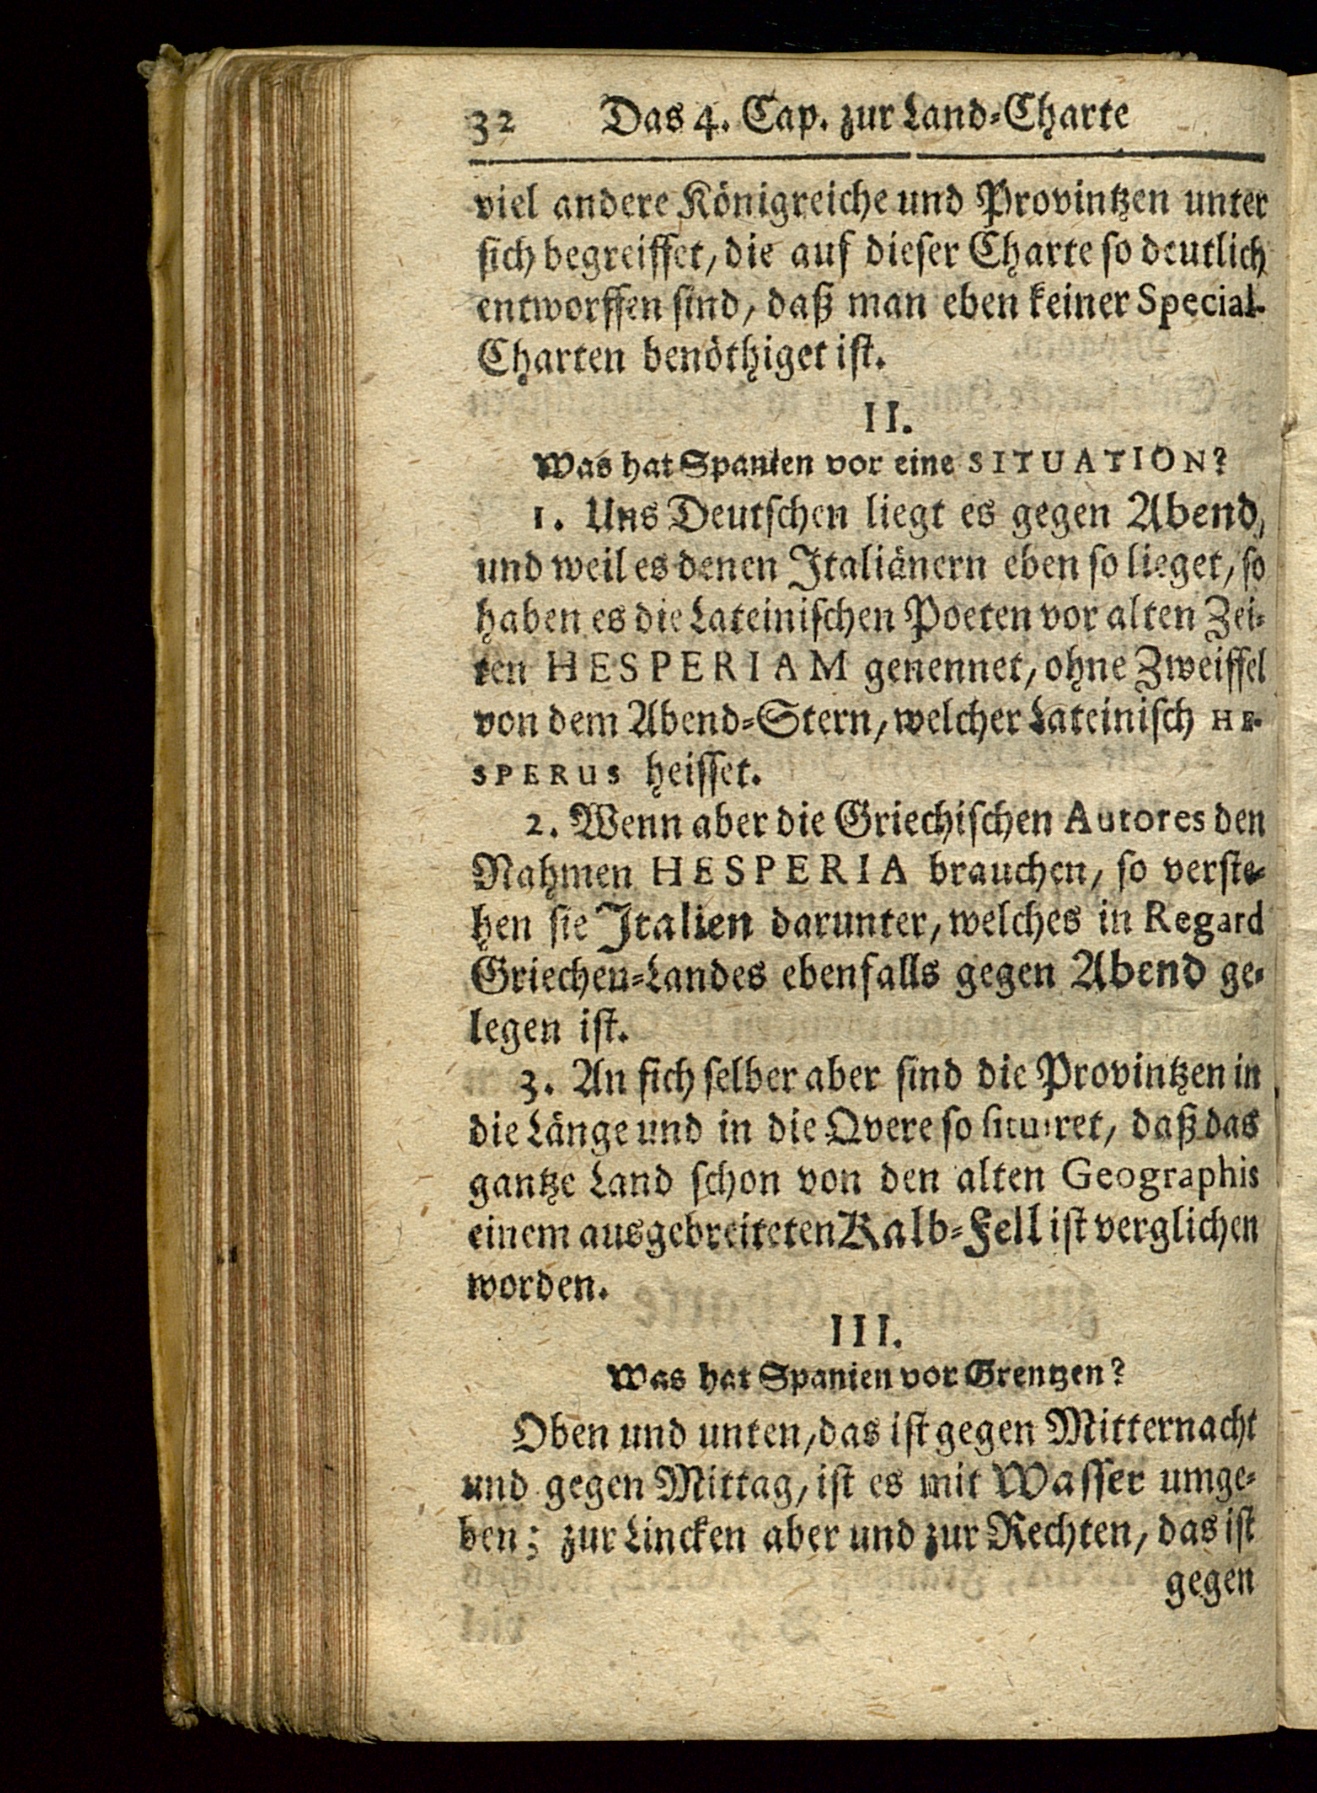 32 Das 4. Cap. zur Land-Charte
viel andere Königreiche und Provintzen unter
sich begreiffet, die auf dieser Charte so deutlich
entworffen sind, daß man eben keiner Special-
Charten benöthiget ist.
II.
Was hat Spanien vor eine SITUATION?
1. Uns Deutschen liegt es gegen Abend,
und weil es denen Italiänern eben so lieget, so
haben es die Lateinischen Poeten vor alten Zei-
ten HESPERIAM genennet, ohne Zweiffel
von dem Abend-Stern, welcher Lateinisch HE-
SPERUS heisset.
2. Wenn aber die Griechischen Autores den
Nahmen HESPERIA brauchen, so verste-
hen sie Italien darunter, welches in Regard
Griechen-Landes ebenfalls gegen Abend ge-
legen ist.
3. An sich selber aber sind die Provintzen in
die Länge und in die Qvere so situiret, daß das
gantze Land schon von den alten Geographis
einem ausgebreiteten Kalb-Fell ist verglichen
worden.
III.
Was hat Spanien vor Grentzen?
Oben und unten, das ist gegen Mitternacht
und gegen Mittag, ist es mit Wasser umge-
ben; zur Lincken aber und zur Rechten, das ist
gegen